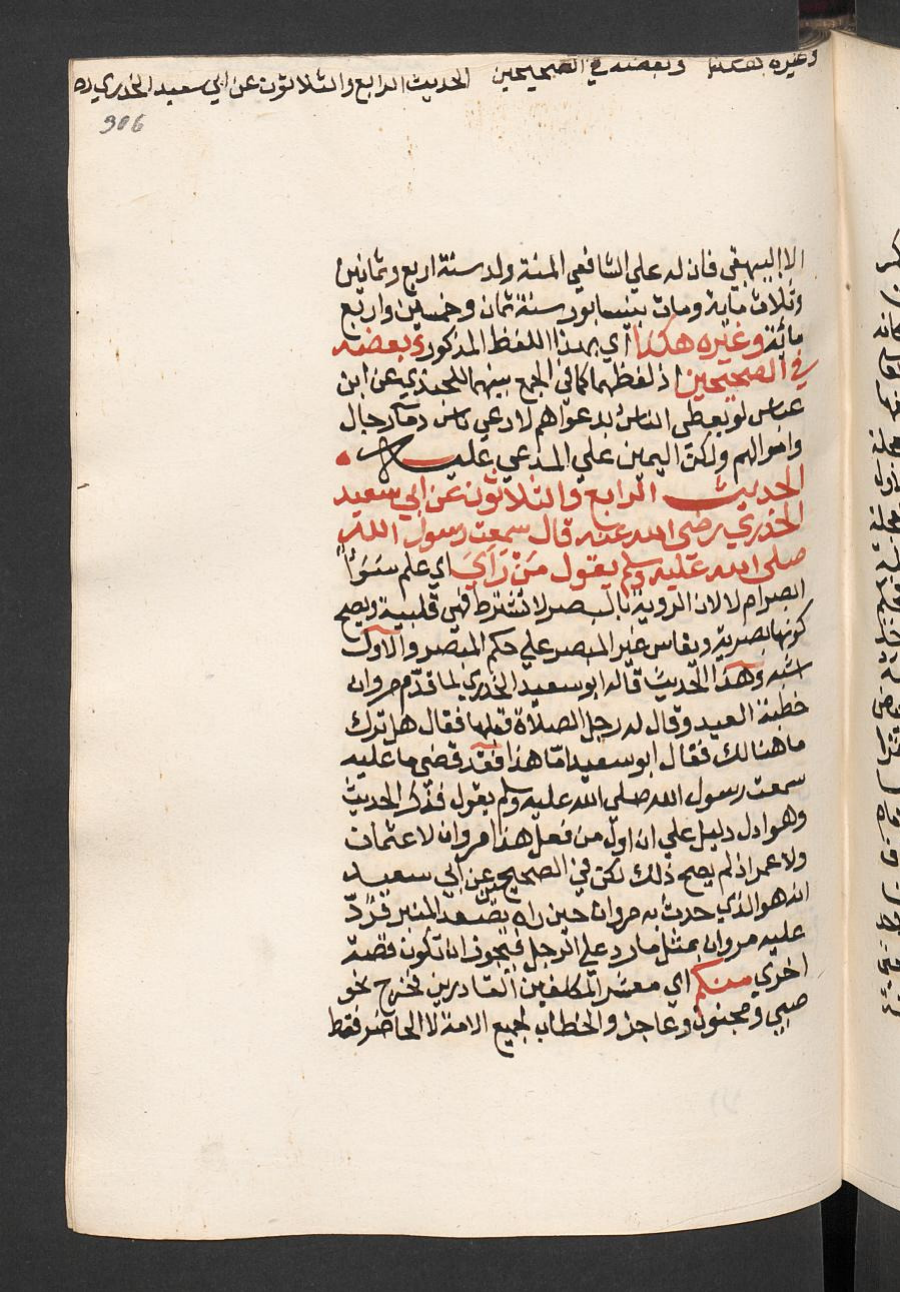 وغيره هكذا وبعضه في الصحيحين الحديث الرابع والثلاثون عن ابي سعيد الخدري رض
306
الا البيهقي فان له علي الشافعي المنة ولد سنة اربع وثمانين
وثلاث ماية ومات بنيسابور سنة ثمان وخمسين واربع
مائة وغيره هكذا اي بهذا اللفظ المذكور وبعضه
في الصحيحين اذ لفظهما كما في الجمع بينهما للحميدي عن ابن
عباس لو يعطى الناس بدعواهم لادعي ناس دمآء رجال
واموالهم ولكن اليمين علي المدعي عليه
الحديث الرابع والثلاثون عن ابي سعيد
الخدري رضي الله عنه قال سمعت رسول الله
صلى الله عليه وسلم يقول مَنْ رَأَيَ اي علم سَوَآءً
ابصر ام لا لان الروية بالبصر لا تشترط فهي قلبية ويصح
كونها بصرية ويقاس غير المبصر علي حكم المبصر والاول
اشبه وهذا الحديث قاله ابو سعيد الخدري لما قدّم مروان
خطبة العيد وقال له رجل الصلاة قبلها فقال هل ترك
ما هنالك فقال ابو سعيد امّا هذا فقد قضى ما عليه
سمعت رسول الله صلى الله عليه وسلم يقول فذكر الحديث
وهو ادل دليل علي ان اول من فعل هذا مروان لا عثمان
ولا عمر اذ لم يصح ذلك لكن في الصحيحين عن ابي سعيد
انه هو الذي حدث به مروان حين راه يصعد المنبر فردّ
عليه مروان بمثل ما رد علي الرجل فيجوز ان تكون قصة
اخري منكم اي معشر المكلفين القادرين فخرج نحو
صبي ومجنون وعاجز والخطاب لجميع الامة لا الحاضر فقط